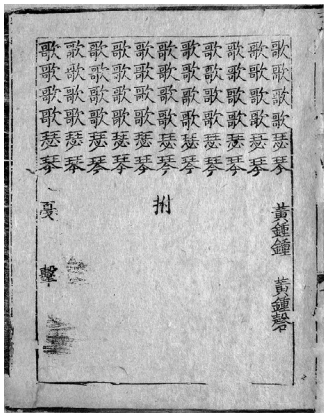 歌歌歌歌瑟琴 黃鍾鍾 黃鍾磬
歌歌歌歌瑟琴
歌歌歌歌瑟琴
歌歌歌歌瑟琴
歌歌歌歌瑟琴
歌歌歌歌瑟琴 拊
歌歌歌歌瑟琴
歌歌歌歌瑟琴
歌歌歌歌瑟琴
歌歌歌歌瑟琴
歌歌歌歌瑟琴 戛 擊